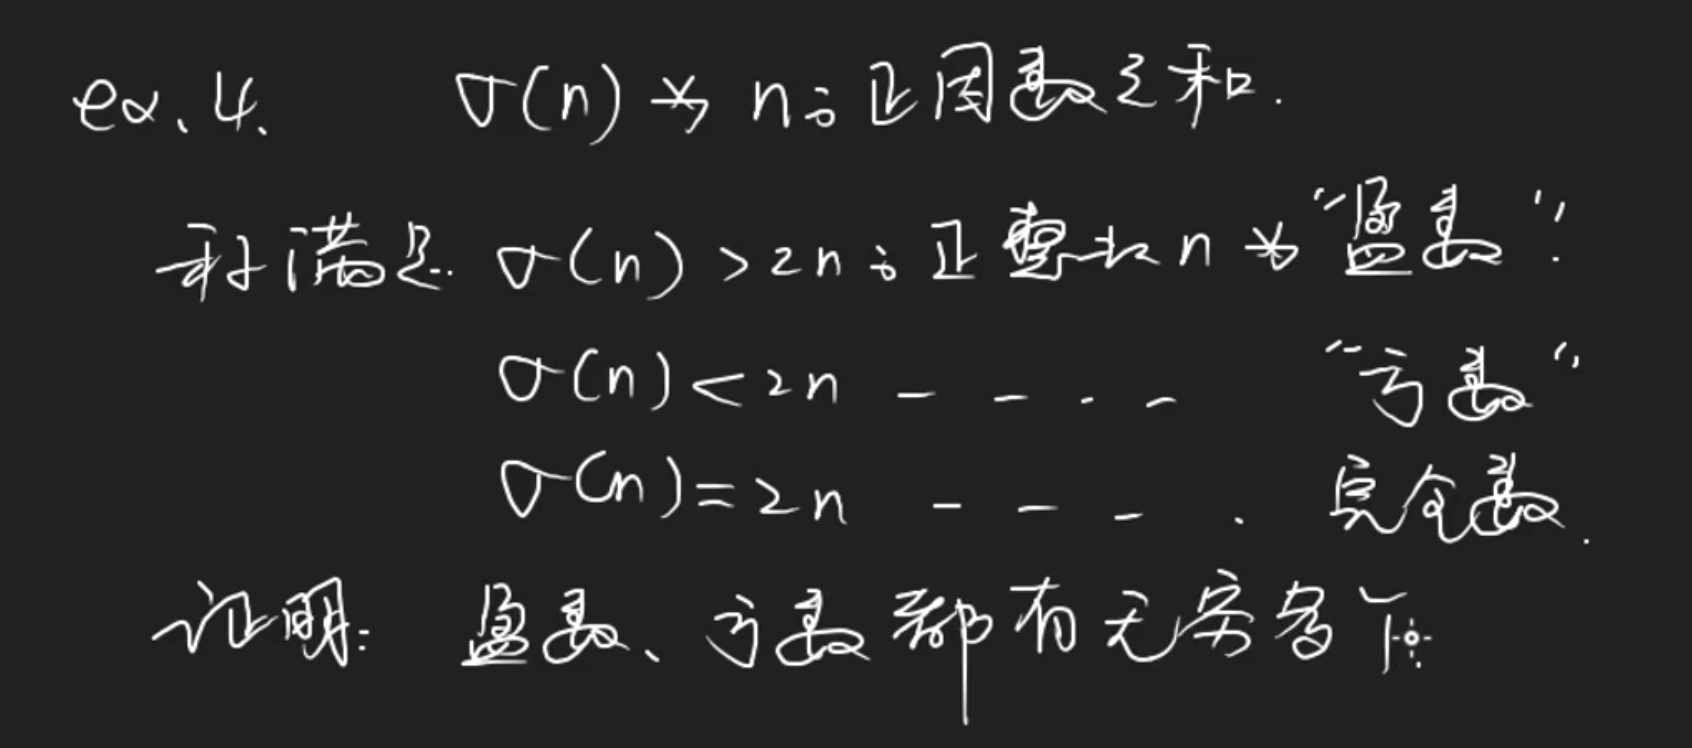 ex.4. σ(n)为n的正因数之和.
称满足 σ(n)>2n的正整数n为“盈数”.
σ(n)<2n - - - - “亏数”
σ(n)=2n - - - . 完全数.
证明: 盈数、亏数都有无穷多个